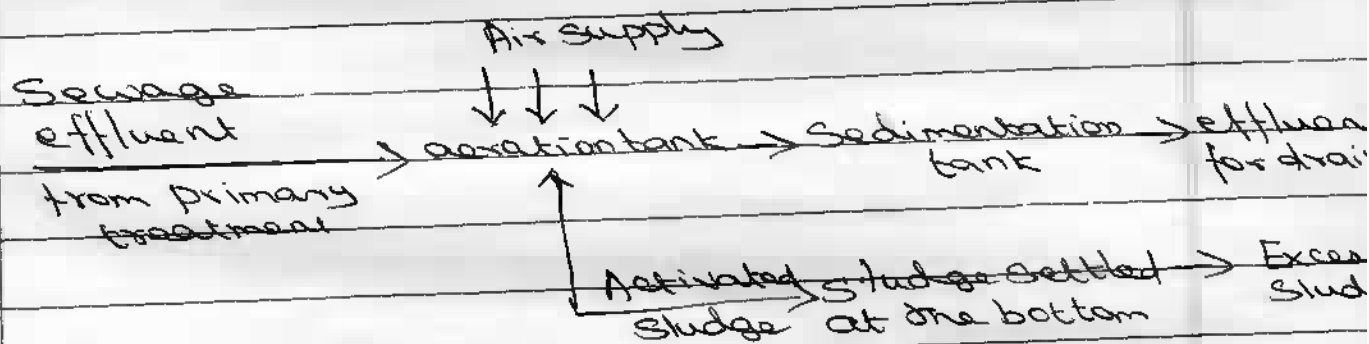 Air supply
Sewage
effluent
from primary
treatment
aeration tank
Sedimentation
tank
for
Activated
sludge
sludge settled
at the bottom